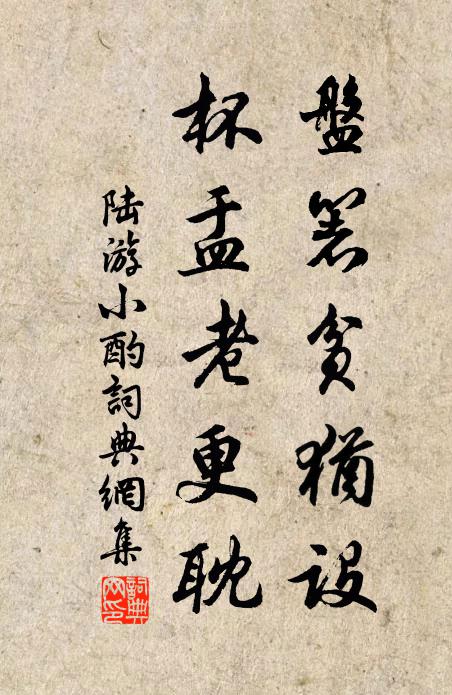 盤箸貧猶設
杯盂老更耽
陆游小酌詞典網集
詞典网印